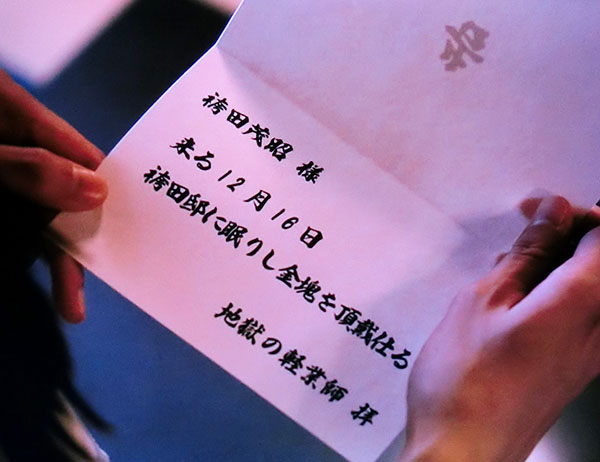 袴田茂昭 様
来る12月16日
袴田邸に眠りし金塊を頂戴仕る
地獄の軽業師 拝